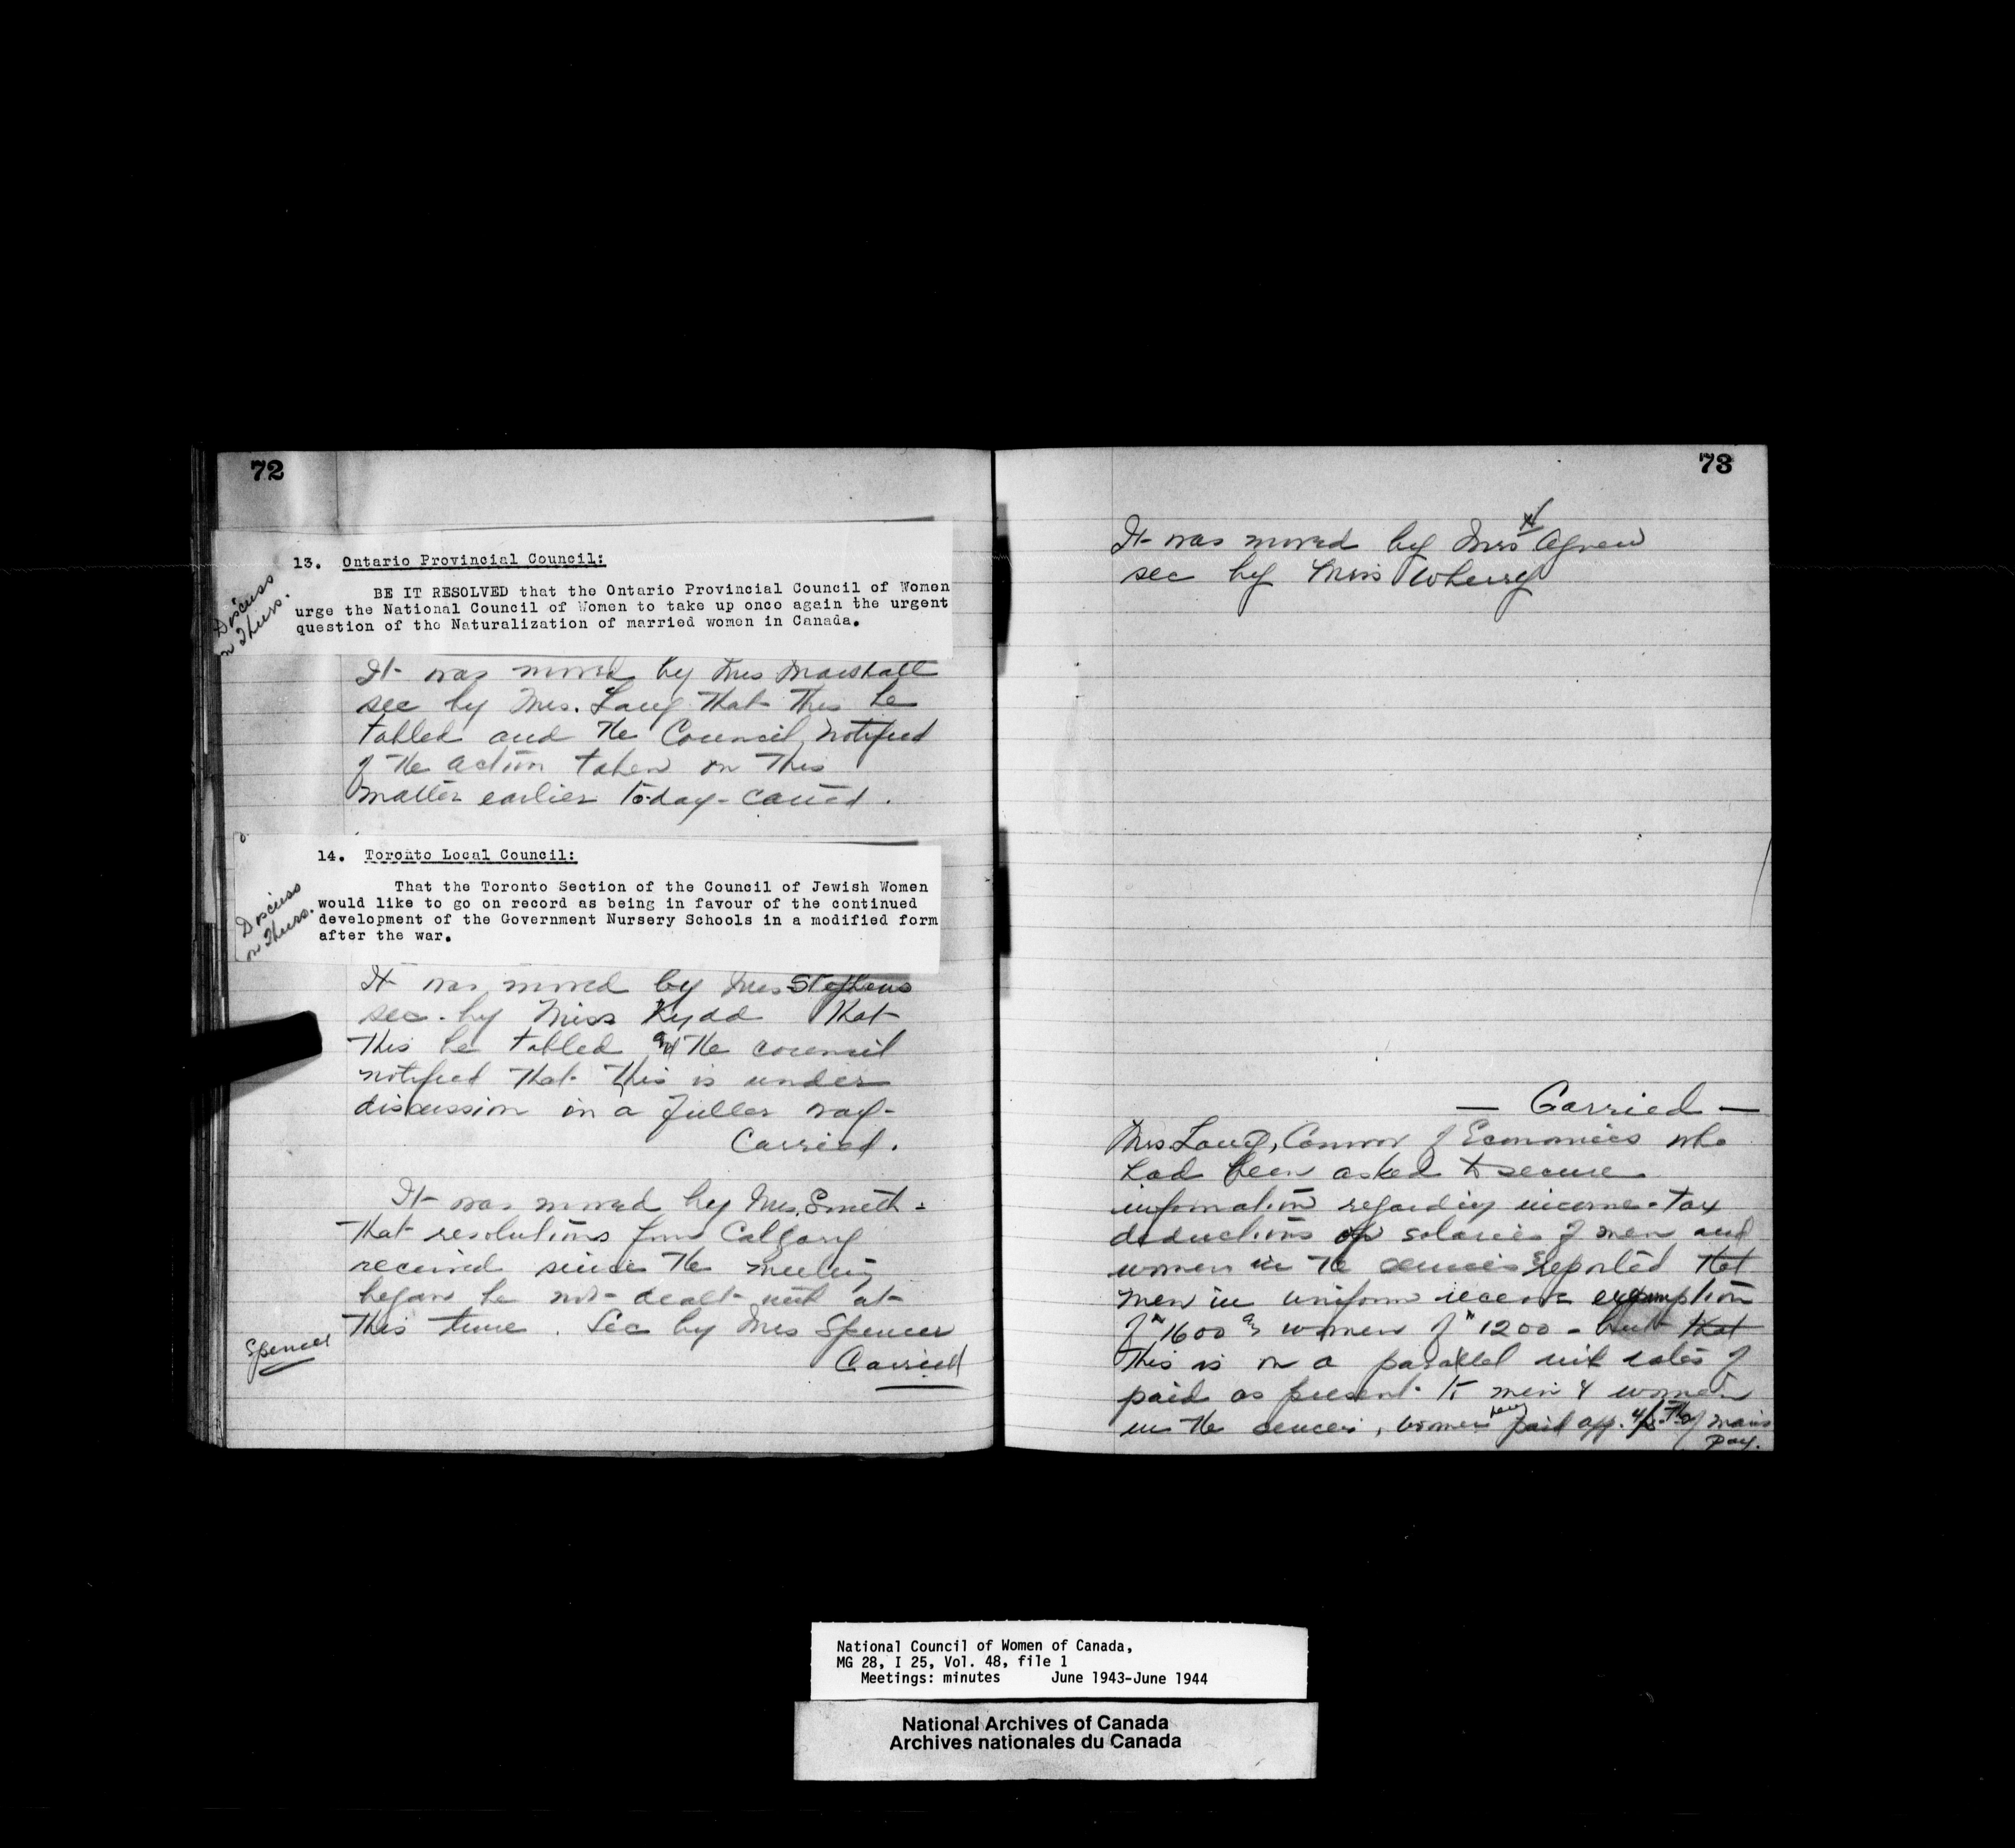 72
13. Ontario Provincial Council:
Discuss
on Thurs.
BE IT RESOLVED that the Ontario Provincial Council of Women
urge the National Council of Women to take up once again the urgent
question of the Naturalization of married women in Canada.
It was moved by Mrs Marshall
sec by Mrs. Laug that this be
tabled and the Council notified
of the action taken on this
matter earlier to-day - carried.
14. Toronto Local Council:
Discuss
on Thurs.
That the Toronto Section of the Council of Jewish Women
would like to go on record as being in favour of the continued
development of the Government Nursery Schools in a modified form
after the war.
It was moved by Mrs Stephens
sec. by Miss Kydd that
this be tabled and the council
notified that this is under
discussion in a fuller way -
Carried.
It was moved by Mrs. Smith -
that resolutions from Calgary
received since the meeting
began be not dealt with at
this time. Sec by Mrs Spencer
Spencer
Carried
73
It was moved by Mrs Agnew
sec by Miss Wherry
— Carried —
Mrs Laug, Convor of Economics who
had been asked to secure
information regarding income-tax
deductions on salaries of men and
women in the services reported that
men in uniform receive exemption
of 1600 women of 1200 - but that
this is on a parallel with rates of
paid as present to men & women
in the services, women being paid app. 4/5 th of man's
pay.
National Council of Women of Canada,
MG 28, I 25, Vol. 48, file 1
Meetings: minutes June 1943-June 1944
National Archives of Canada
Archives nationales du Canada